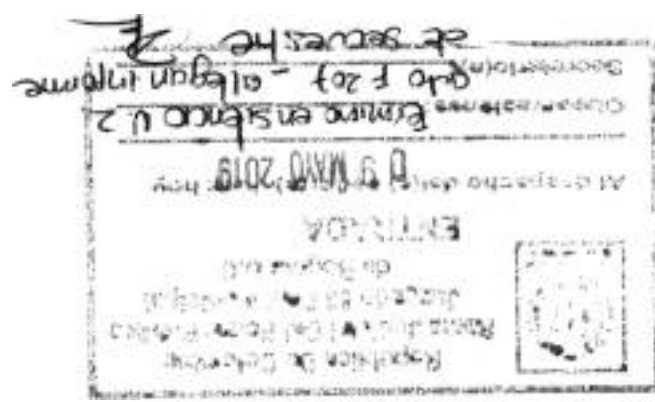 República De Colombia
Rama Judicial Del Poder Público
Juzgado Municipal
de Bogotá D.C.
ENTRADA
Al despacho del(a) señor(a) juez hoy
09 MAYO 2019
Observaciones Término en silencio
auto f 207 - allegan informe
Secretario(a)
de secuestre